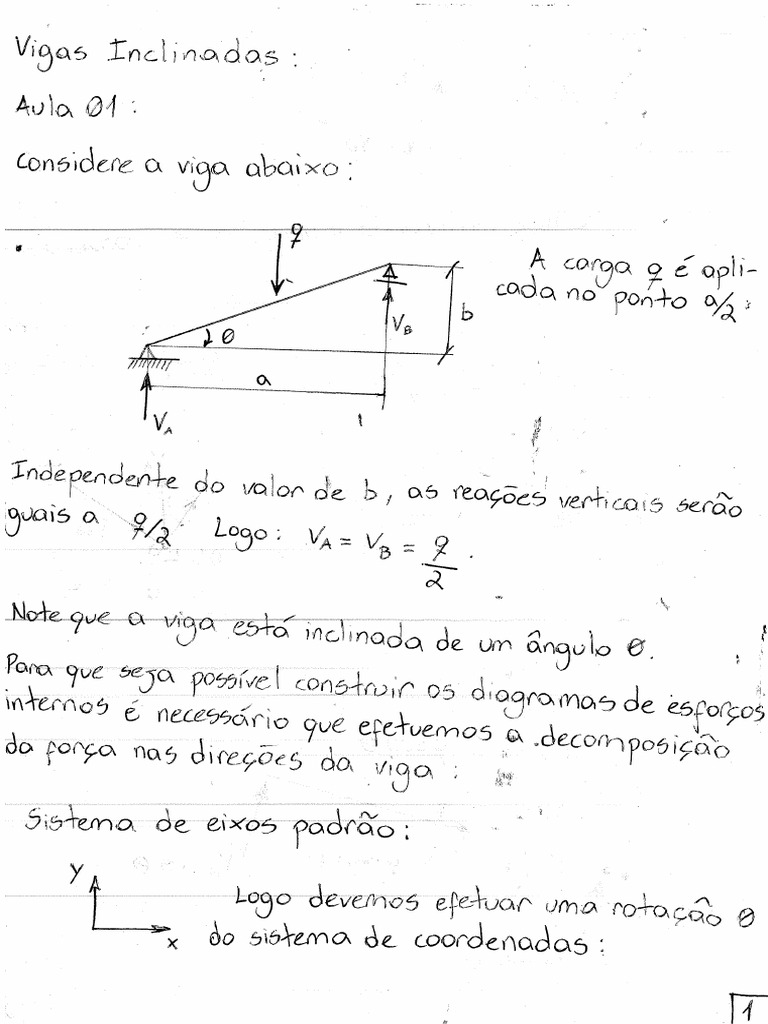 Vigas Inclinadas:
Aula 01:
Considere a viga abaixo:
q
A carga q é apli-
cada no ponto a/2:
θ
V_B
b
a
V_A
Independente do valor de b, as reações verticais serão
iguais a q/2 Logo: V_A = V_B = q/2.
Note que a viga está inclinada de um ângulo θ.
Para que seja possível construir os diagramas de esforços
internos é necessário que efetuemos a decomposição
da força nas direções da viga:
Sistema de eixos padrão:
y
x
Logo devemos efetuar uma rotação θ
do sistema de coordenadas:
1